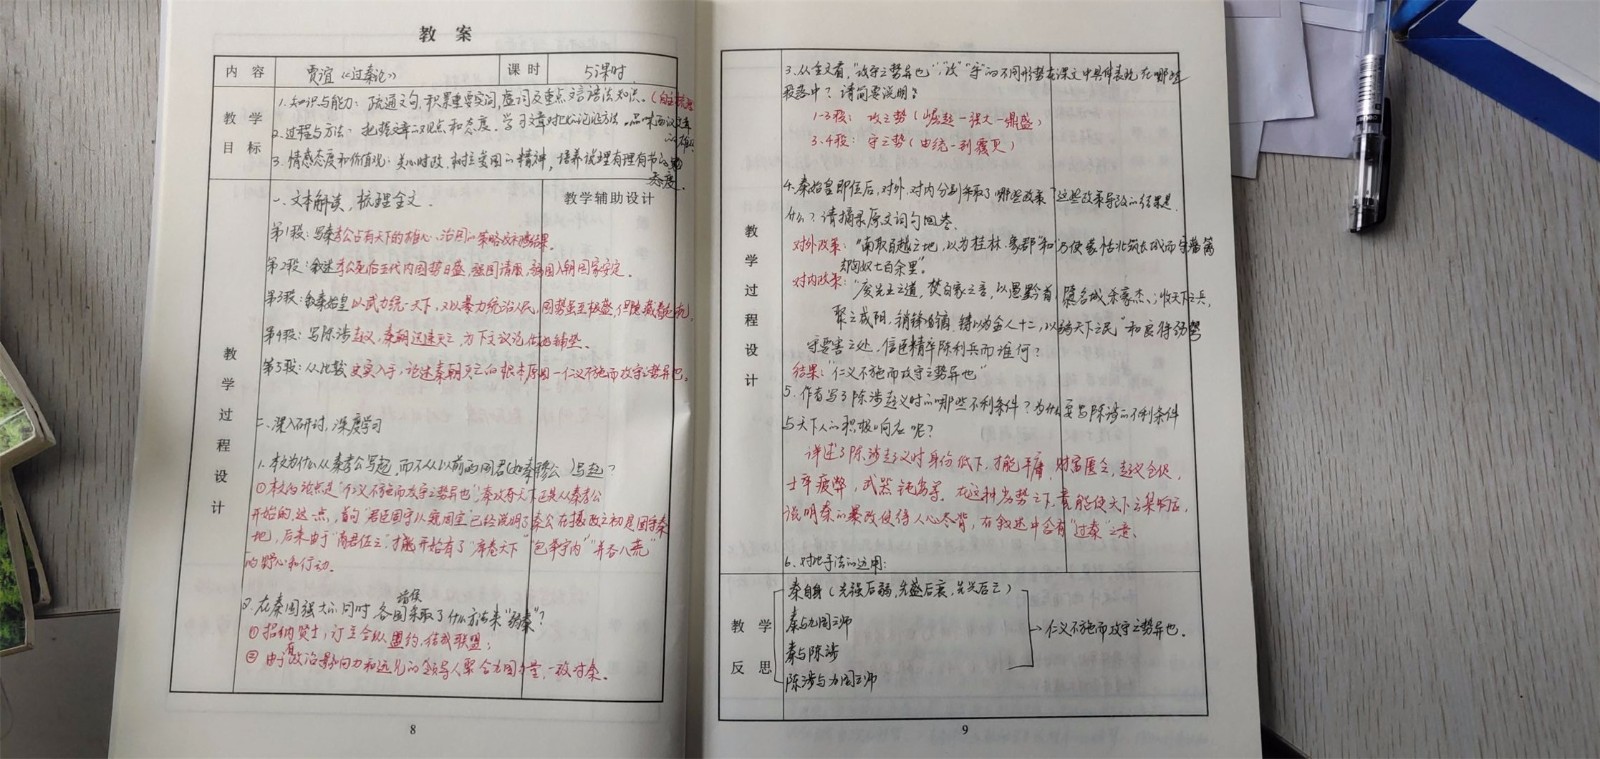 教 案
内 容 贾谊《过秦论》 课 时 5课时
教 学 目 标
1.知识与能力：疏通文句，积累重要实词，虚词及重点文言语法知识。
2.过程与方法：把握文章的观点和态度。学习文章对比论证方法。品味
3.情感态度和价值观：关心时政，树立爱国的精神，培养说理有理有节的
态度。
教 学 过 程 设 计
一.文本解读，梳理全文. 教学辅助设计
第1段：写秦孝公占有天下的雄心、治国的策略及效果。
第2段：叙述孝公死后五代内国势日盛，强国请服，弱国入朝国家安定。
第3段：叙秦始皇以武力统一天下，又以暴力统治人民，国势虽至极盛，但隐藏着危机。
第4段：写陈涉起义，秦朝迅速灭亡，为下文议论作出铺垫。
第5段：从比较史实入手，论述秦朝灭亡的根本原因—仁义不施而攻守之势异也。
二.深入研讨，深度学习
1.本文为什么从秦孝公写起，而不从以前的国君(如秦穆公)写起？
①本文的论点是“仁义不施而攻守之势异也”，秦攻夺天下正是从秦孝公
开始的，这一点，首句“君臣固守以窥周室”已经说明了秦公在摄政之初是固守秦
地，后来由于“商君佐之”，才能开始有了“席卷天下”“包举宇内”“并吞八荒”
的野心和行动.
2.在秦国强大的同时 各国采取了什么方法来“弱秦”？
诸侯
①招纳贤士，订立合纵盟约，结成联盟；
②由有政治影响力和远见的领导人聚合九国之士，一致对秦。
8
教 学 过 程 设 计
3.从全文看，“攻守之势异也”，“攻”“守”的不同形势在课文中具体表现在哪些
段落中？请简要说明？
1-3段：攻之势(崛起—强大—鼎盛)
3.4段：守之势(由统一到覆灭)
4.秦始皇即位后，对外、对内分别采取了哪些政策？这些政策导致的结果是
什么？请摘录原文词句回答.
对外政策：“南取百越之地，以为桂林、象郡”和“乃使蒙恬北筑长城而守藩篱
却匈奴七百余里”。
对内政策：“废先王之道，焚百家之言，以愚黔首，隳名城，杀豪杰，；收天下之兵，
聚之咸阳，销锋镝，铸以为金人十二，以弱天下之民”和良将劲弩
守要害之处，信臣精卒陈利兵而谁何？
结果：“仁义不施而攻守之势异也”
5.作者写了陈涉起义时的哪些不利条件？为什么要写陈涉的不利条件
与天下人的积极响应呢？
详述了陈涉起义时身份低下，才能平庸，财富匮乏，起义仓促，
士卒疲弊，武器钝劣等。在这种劣势之下，竟能使天下云集响应，
说明秦的暴政使得人心尽背，在叙述中含有“过秦”之意.
6.对比手法的运用：
教 学 反 思
秦自身(先强后弱，先盛后衰，先兴后亡)
秦与九国之师
秦与陈涉
陈涉与九国之师
→仁义不施而攻守之势异也.
9